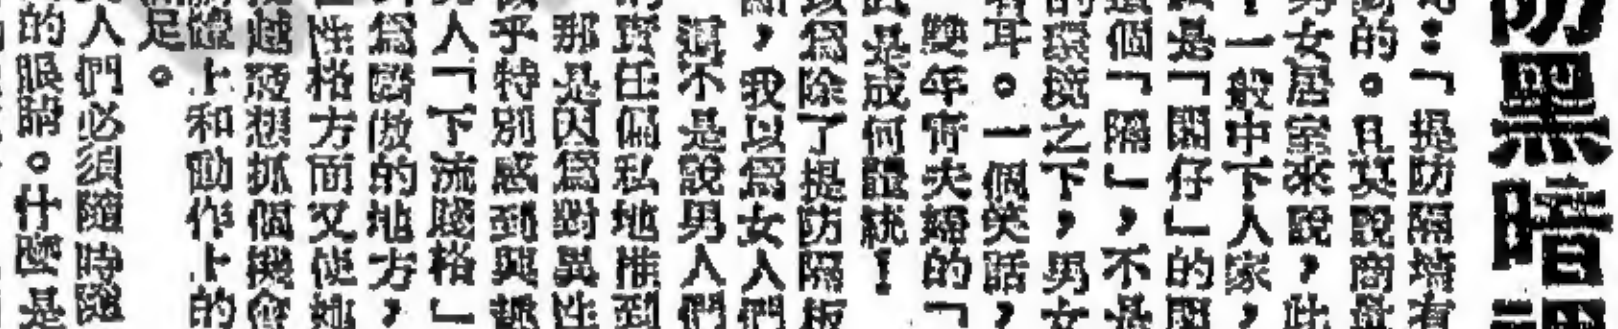 防黑暗
：「提防隔墻有
的。且莫說商量
男女居室來說，此
，一般中下人家，
是「開仔」的開
個「隔」，不是
的環境之下，男女
耳。一個笑話，
雙年青夫婦的「
是成何體統！
爲除了提防隔板
，我以爲女人們
這不是說男人們
責任偏私地推到
那是因爲對異性
乎特別感到興趣
人「下流賤格」
爲驕傲的地方，
性格方面又使她
越發想抓個機會
上和動作上的
足。
人們必須隨時隨
的眼睛。什麼是